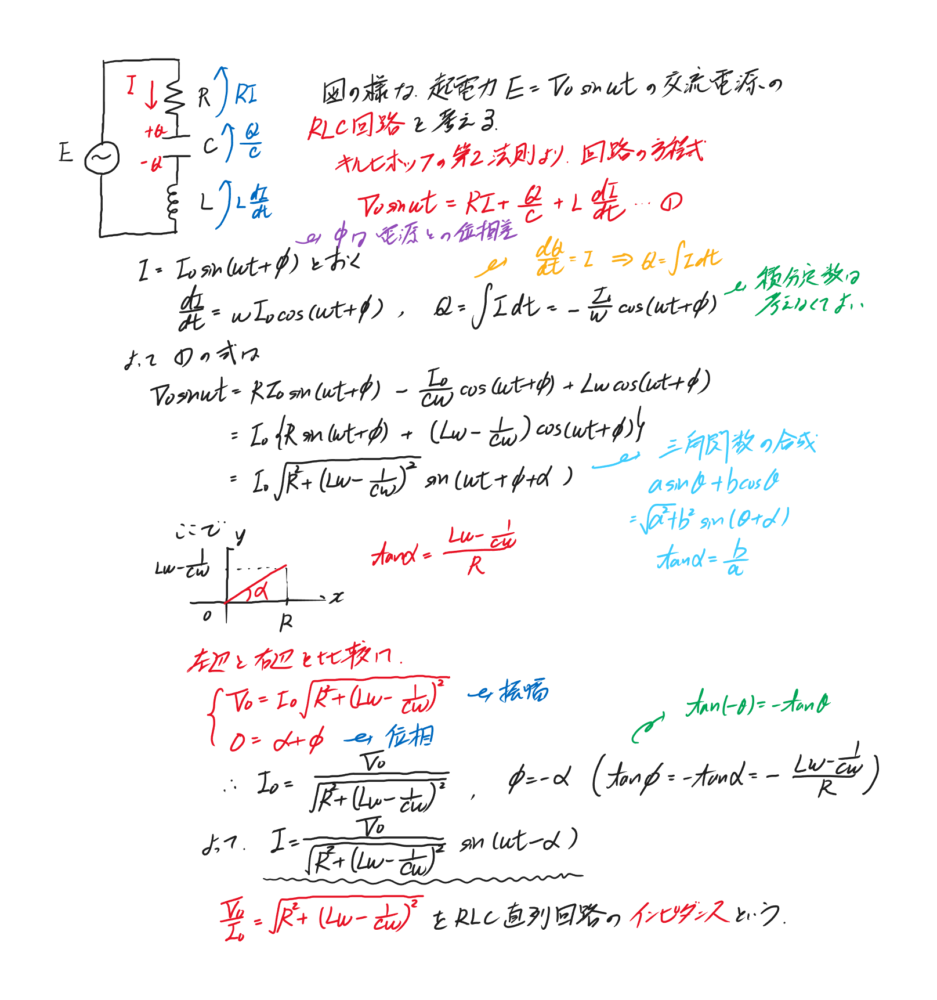 I R RI
+Q
-Q C Q/C
E
L L dI/dt
図の様な、起電力 E = V₀ sin ωt の交流電源の
RLC回路を考える.
キルヒホッフの第2法則より、回路の方程式
V₀ sin ωt = RI + Q/C + L dI/dt … ①
φは電源との位相差
I = I₀ sin(ωt+φ) とおく
dQ/dt = I ⇒ Q = ∫I dt
dI/dt = ωI₀ cos(ωt+φ) , Q = ∫I dt = - I₀/ω cos(ωt+φ)
積分定数は
考えなくてよい
よって ①の式は
V₀ sin ωt = RI₀ sin(ωt+φ) - I₀/Cω cos(ωt+φ) + Lω cos(ωt+φ)
= I₀ {R sin(ωt+φ) + (Lω - 1/Cω) cos(ωt+φ)}
= I₀ √(R² + (Lω - 1/Cω)²) sin(ωt+φ+α)
三角関数の合成
a sin θ + b cos θ
= √(a²+b²) sin(θ+α)
tan α = b/a
ここで
y
Lω - 1/Cω
α
0 R x
tan α = (Lω - 1/Cω)/R
左辺と右辺を比較して.
V₀ = I₀ √(R² + (Lω - 1/Cω)²) 振幅
0 = α+φ 位相
tan(-θ) = -tan θ
∴ I₀ = V₀/√(R² + (Lω - 1/Cω)²) , φ = -α (tan φ = -tan α = - (Lω - 1/Cω)/R)
よって. I = V₀/√(R² + (Lω - 1/Cω)²) sin(ωt-α)
V₀/I₀ = √(R² + (Lω - 1/Cω)²) をRLC直列回路のインピダンスという.